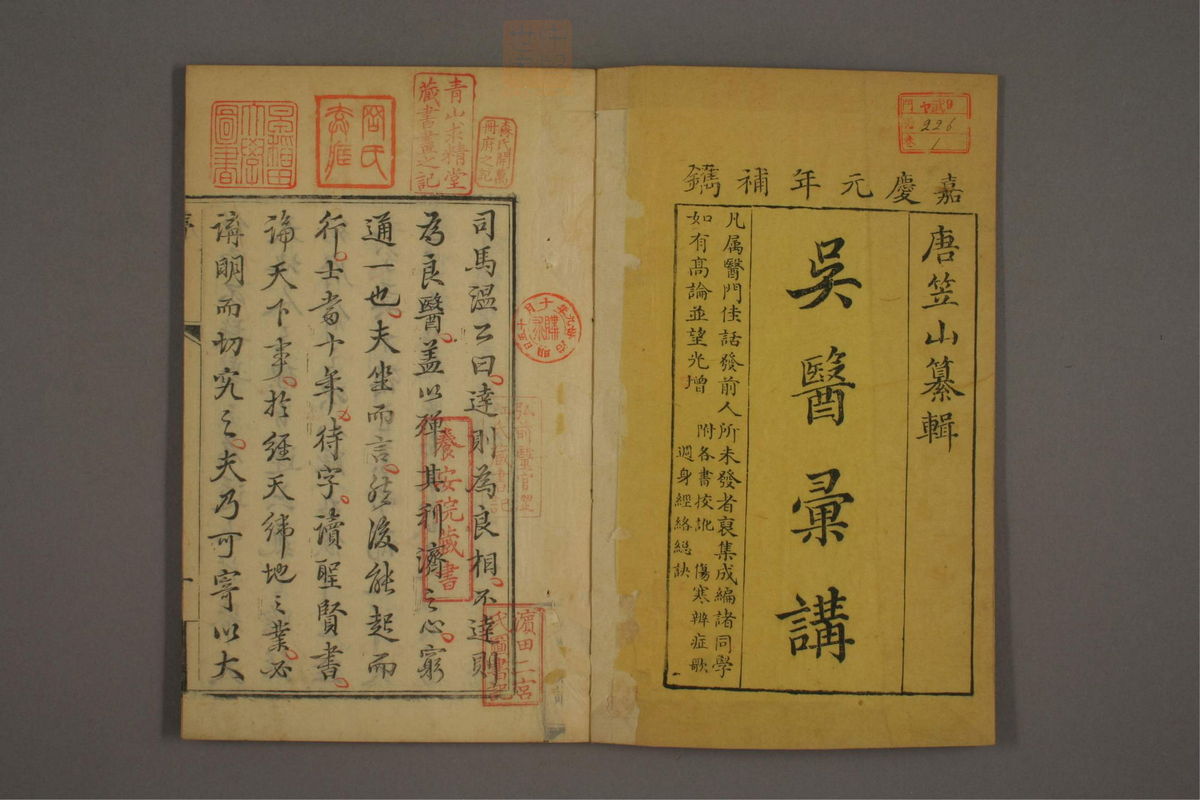 嘉慶元年補鐫
唐笠山纂輯
吳醫彙講
凡属醫門佳話發前人所未發者裒集成編諸同學
如有高論並望光增 附各書挍訛 傷寒辨症歌
週身經絡總訣
226
司馬溫公曰達則為良相不達則
為良醫蓋以殫其利濟之心窮
通一也夫坐而言然後能起而
行士當十年待字讀聖賢書
論天下事於經天緯地之業必
講明而切究之夫乃可寄以大
森氏開萬
冊府之記
青山求精堂
藏書畫之記
養安院藏書
弘前醫官澀
江氏藏書記